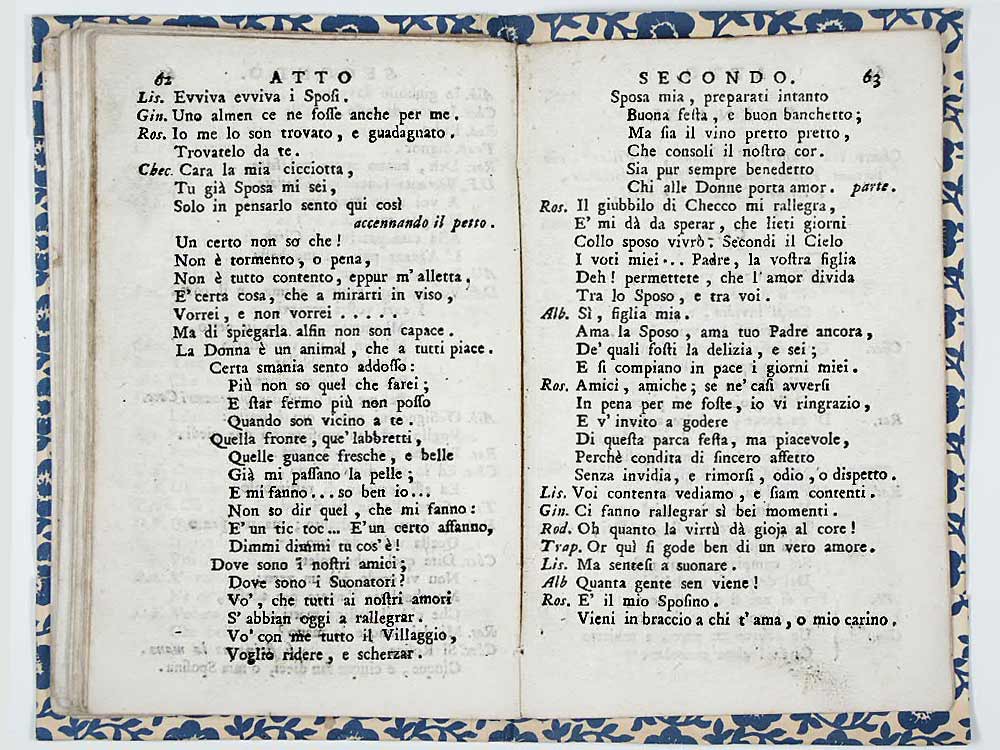 62 ATTO
Lis. Evviva evviva i Sposi.
Gin. Uno almen ce ne fosse anche per me.
Ros. Io me lo son trovato, e guadagnato.
Trovatelo da te.
Chec. Cara la mia cicciotta,
Tu già Sposa mi sei,
Solo in pensarlo sento qui così
accennando il petto.
Un certo non so che!
Non è tormento, o pena,
Non è tutto contento, eppur m'alletta.
E' certa cosa, che a mirarti in viso,
Vorrei, e non vorrei .....
Ma di spiegarla alfin non son capace.
La Donna è un animal, che a tutti piace.
Certa smania sento addosso:
Più non so quel che farei;
E star fermo più non posso
Quando son vicino a te.
Quella fronte, que' labbretti,
Quelle guance fresche, e belle
Già mi passano la pelle;
E mi fanno... so ben io...
Non so dir quel, che mi fanno:
E' un tic toc... E' un certo affanno,
Dimmi dimmi tu cos'è!
Dove sono i nostri amici;
Dove sono i Suonatori?
Vo', che tutti ai nostri amori
S' abbian oggi a rallegrar.
Vo' con me tutto il Villaggio,
Voglio ridere, e scherzar.
SECONDO. 63
Sposa mia, preparati intanto
Buona festa, e buon banchetto;
Ma sia il vino pretto pretto,
Che consoli il nostro cor.
Sia pur sempre benedetto
Chi alle Donne porta amor. parte.
Ros. Il giubbilo di Checco mi rallegra,
E' mi dà da sperar, che lieti giorni
Collo sposo vivrò. Secondi il Cielo
I voti miei... Padre, la vostra figlia
Deh! permettete, che l'amor divida
Tra lo Sposo, e tra voi.
Alb. Sì, figlia mia.
Ama la Sposo, ama tuo Padre ancora,
De' quali fosti la delizia, e sei;
E si compiano in pace i giorni miei.
Ros. Amici, amiche; se ne' casi avversi
In pena per me foste, io vi ringrazio,
E v' invito a godere
Di questa parca festa, ma piacevole,
Perchè condita di sincero affetto
Senza invidia, e rimorsi, odio, o dispetto.
Lis. Voi contenta vediamo, e siam contenti.
Gin. Ci fanno rallegrar sì bei momenti.
Rod. Oh quanto la virtù dà gioja al core!
Trap. Or quì si gode ben di un vero amore.
Lis. Ma sentesi a suonare.
Alb Quanta gente sen viene!
Ros. E' il mio Sposino.
Vieni in braccio a chi t'ama, o mio carino.